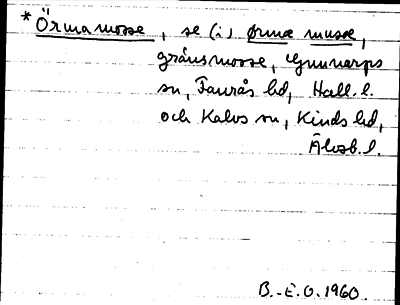 *Örmamosse, se (i) ørmæ musse,
gränsmosse, Gunnarps
sn, Faurås hd, Hall. l.
och Kalvs sn, Kinds hd,
Älvsb. l.
B.-E.O. 1960.